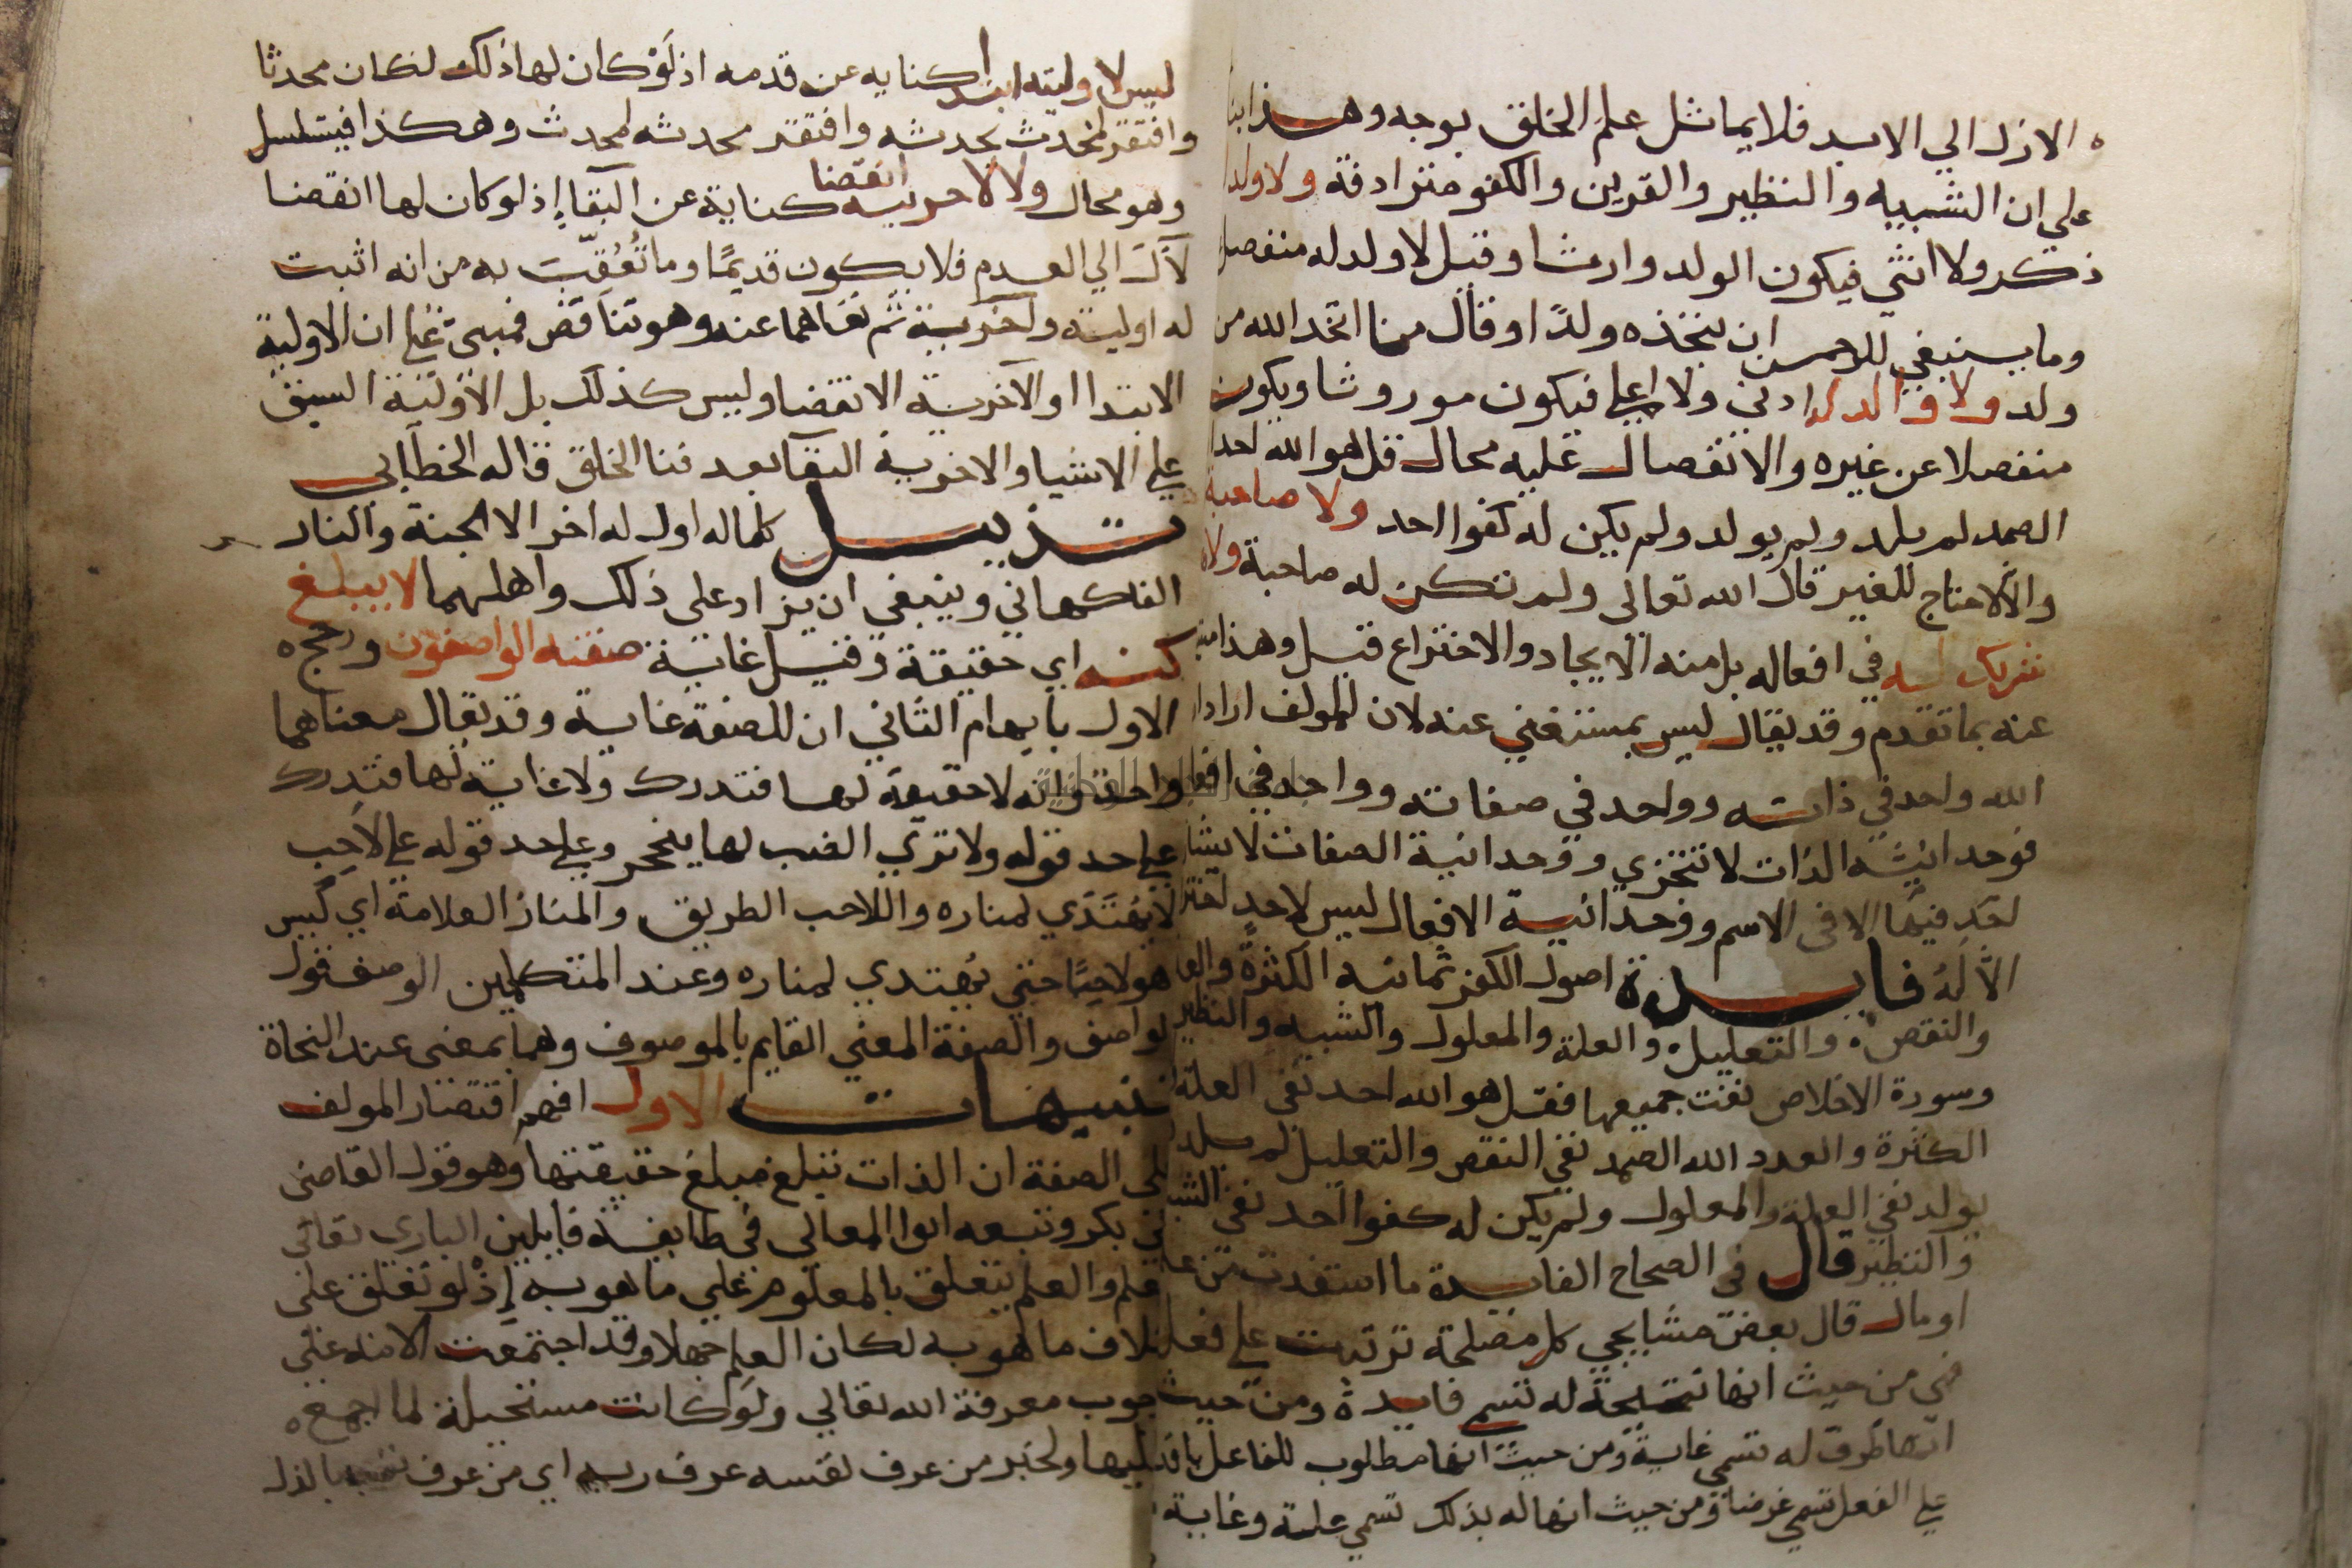 الازل الي الابد فلا يماثل علم الخلق بوجه وهذا بنا
علي ان الشبيه والنظير والقرين والكفو مترادفة ولا ولد
ذكر ولا انثي فيكون الولد وارثا وقيل لا ولد له منفصل
وما ينبغي للرحمن ان يتخذه ولدًا وقال ما اتخذ الله من
ولد ولا والد ادني ولا اعلي فيكون موروثا ويكون
منفصلا عن غيره والانفصال عليه محال قل هو الله احد
الصمد لم يلد ولم يولد ولم يكن له كفوا احد ولا صاحبة
والا لاحتاج للغير قال الله تعالى ولم تكن له صاحبة ولا
شريك له في افعاله بل منه الايجاد والاختراع قيل وهذا
عنه بما تقدم وقد يقال ليس بمستغني عنه لان المولف اراد
الله واحد في ذاته وواحد في صفاته وواحد في افعا
فوحدانية الذات لا تتجزي ووحدانية الصفات لا يشا
احد فيها الا في الاسم ووحدانية الافعال ليس لاحد اختر
الا له فايدة اصول الكفر ثمانية الكثرة والعد
والنقص والتعليل والعلة والمعلول والشبيه والنظير
وسورة الاخلاص نفت جميعها فقل هو الله احد نفي العلة
الكثرة والعدد الله الصمد نفي النقص والتعليل لم يلد
يولد نفي العلة والمعلول ولم يكن له كفوا احد نفي الشبـ
والنظير قال في الصحاح الفايدة ما استفدت من علم
او مال قال بعض مشايخي كل مصلحة ترتبت علي فعل
فهي من حيث انها نتيجة له تسمي فايدة ومن حيث
انها طرف له تسمي غاية ومن حيث انها مطلوب للفاعل باقد
علي الفعل تسمي غرضا ومن حيث انها له بذلك تسمي علة وغاية
ليس لاوليته ابتدا كناية عن قدمه اذ لو كان لها ذلك لكان محدثا
وافتقر لمحدث يحدثه وافتقر محدثه لمحدث وهكذا فيتسلسل
وهو محال ولا لاخريته انقضا كناية عن البقا إذ لو كان لها انقضا
لآل الي العدم فلا يكون قديمًا وما تُعُقِّبَ به من انه اثبت
له اولية واخرية ثم نفاهما عنه وهو تناقض فمبني علي ان الاولية
الابتدا والآخرية الانقضا وليس كذلك بل الأولية السبق
علي الاشيا والاخرية البقا بعد فنا الخلق قاله الخطابي
تذييل كلما له اول له اخر الا الجنة والنار
الفاكهاني وينبغي ان يزاد على ذلك واهلهما لا يبلغ
كنه اي حقيقة وقيل غاية صفته الواصفون ورجح
الاول بايهام الثاني ان للصفة غاية وقد يقال معناهما
واحد وانه لا حقيقة لها فتدرك ولا غاية لها فتدرك
علي حد قوله ولا تري الضب لها ينجحر وعلي حد قوله علي لاحِب
لا يُهتَدَي لمناره واللاحب الطريق والمنار العلامة اي ليس
هو لاحبًا حتي يهتدي لمناره وعند المتكلمين الوصف قول
لواصف والصفة المعني القايم بالموصوف وهما بمعنى عند النحاة
تنبيهات الاول افهم اقتصار المولف
علي الصفة ان الذات تبلغ مبلغ حقيقتها وهو قول القاضي
بي بكر وتبعه ابوا المعالي في طايفة قايلين الباري تعالي
علم والعلم يتعلق بالمعلوم علي ما هو به إذ لو تعلق علي
خلاف ما هو به لكان العلم جهلا وقد اجتمعت الامة علي
وجوب معرفة الله تعالي ولو كانت مستحيلة لما اجمع
عليها ولخبر من عرف نفسه عرف ربه اي من عرف نفسه بالذل